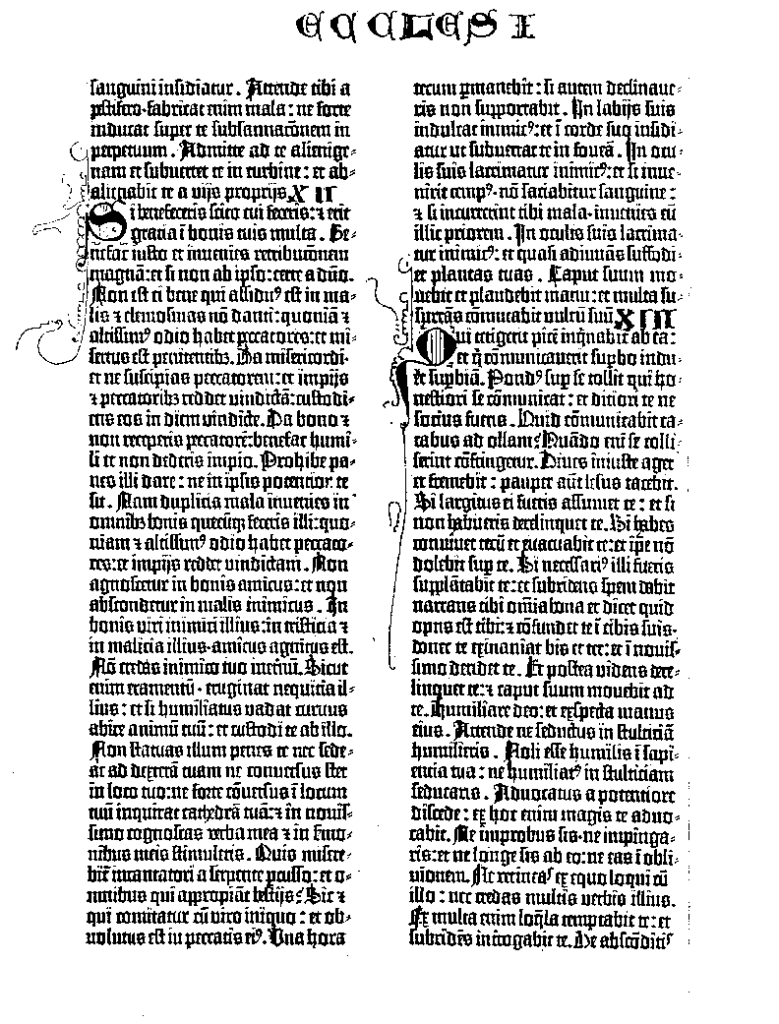 ECCLESI
sanguini insidiatur. Attende tibi a
pestifero·fabricat enim mala: ne forte
inducat super te subsannacōnem in
perpetuum. Admitte ad te alienige-
nam et subuertet te in turbine: et ab-
alienabit te a vijs proprijs. XII
Si benefeceris scito cui feceris: ⁊ erit
gratia ī bonis tuis multa. Be-
nefac iusto et inuenies retribucōnem
magnā: et si non ab ipso: certe a dño.
Non est ei bene qui assiduꝰ est in ma-
lis ⁊ elemosinas nō danti: quoniā ⁊
altissimꝰ odio habet peccatores: et mi-
sertus est penitentibꝫ. Da misericordi-
et ne suscipias peccatorem: et impijs
⁊ peccatoribꝫ reddet vindictā: custodi-
ens eos in diem vindicte. Da bono ⁊
non receperis peccatorē: benefac humi-
li et non dederis impio. Prohibe pa-
nes illi dare: ne in ipsis potentior te
sit. Nam duplicia mala inuenies in
omnibꝫ bonis quecūqꝫ feceris illi: quo-
niam ⁊ altissimꝰ odio habet peccato-
res: et impijs reddet vindictam. Non
agnoscetur in bonis amicus: et non
abscondetur in malis inimicus. In
bonis viri inimici illius: in tristicia ⁊
in malicia illius·amicus agnitus est.
Nō credas inimico tuo ineternū. Sicut
enim eramentū·eruginat nequicia il-
lius: et si humiliatus vadat curuus
abice animū tuū: et custodi te ab illo.
Non statuas illum penes te nec sede-
at ad dexterā tuam ne conuersus stet
in loco tuo: ne forte cōuersus ī locum
tuū inquirat cathedrā tuā: ⁊ in nouis-
simo cognoscas verba mea ⁊ in smo-
nibus meis stimuleris. Quis misere-
bit̄ incantatori a serpente pcusso: et o-
mnibus qui appropiāt bestijs? Sic ⁊
qui comitatur cū viro iniquo: et ob-
uolutus est in peccatis eiꝰ. Una hora
tecum pmanebit: si autem declinaue-
ris non supportabit. In labijs suis
indulcat inimicꝰ: et ī corde suo insidi-
atur ut subuertat te in foueā. In ocu-
lis suis lacrimatur inimicꝰ: et si inue-
nerit tempꝰ·nō saciabitur sanguine:
⁊ si incurrerint tibi mala·inuenies eū
illic priorem. In oculis lacrima-
tur inimicꝰ: et quasi adiuuās suffodi-
et plantas tuas. Caput suum mo-
uebit et plaudebit manu: et multa su-
surrās cōmutabit vultū suū. XIII
Qui tetigerit picē inqnabit̄ ab ea:
et q̄ cōmunicauerit supbo indu-
et supbiā. Pondꝰ sup se tollit qui ho-
nestiori se cōmunicat: et ditiori te ne
socius fueris. Quid cōmunicabit ca-
cabus ad ollam? Quādo eni se colli-
serint cōfringetur. Diues iniuste aget
et fremebit: pauper aūt lesus tacebit.
Si largitus ei fueris assumet te: et si
non habueris derelinquet te. Si habes
conuiuet tecū et euacuabit te: et ipe nō
dolebit sup te. Si necessariꝰ illi fueris
supplātabit te: et subridens spem dabit
narrans tibi omīa bona et dicet quid
opus est tibi: ⁊ cōfundet te ī cibis suis·
donec te exinaniat bis et ter: et ī nouis-
simo deridet te. Et postea videns dere-
linquet te: ⁊ caput suum mouebit ad
te. Humiliare deo: et exspecta manus
eius. Attende ne seductus in stulticiā
humilieris. Noli esse humilis ī sapi-
encia tua: ne humiliatꝰ in stulticiam
seducaris. Aduocatus a potentiore
discede: ex hoc enim magis te aduo-
cabit. Ne improbus sis·ne impinga-
ris: et ne longe sis ab eo: ne eas ī obli-
uionem. Ne retineas ex equo loqui cū
illo: nec credas multis verbis illius.
Ex multa enim loqla temptabit te: et
subridēs interrogabit te. De absconditis